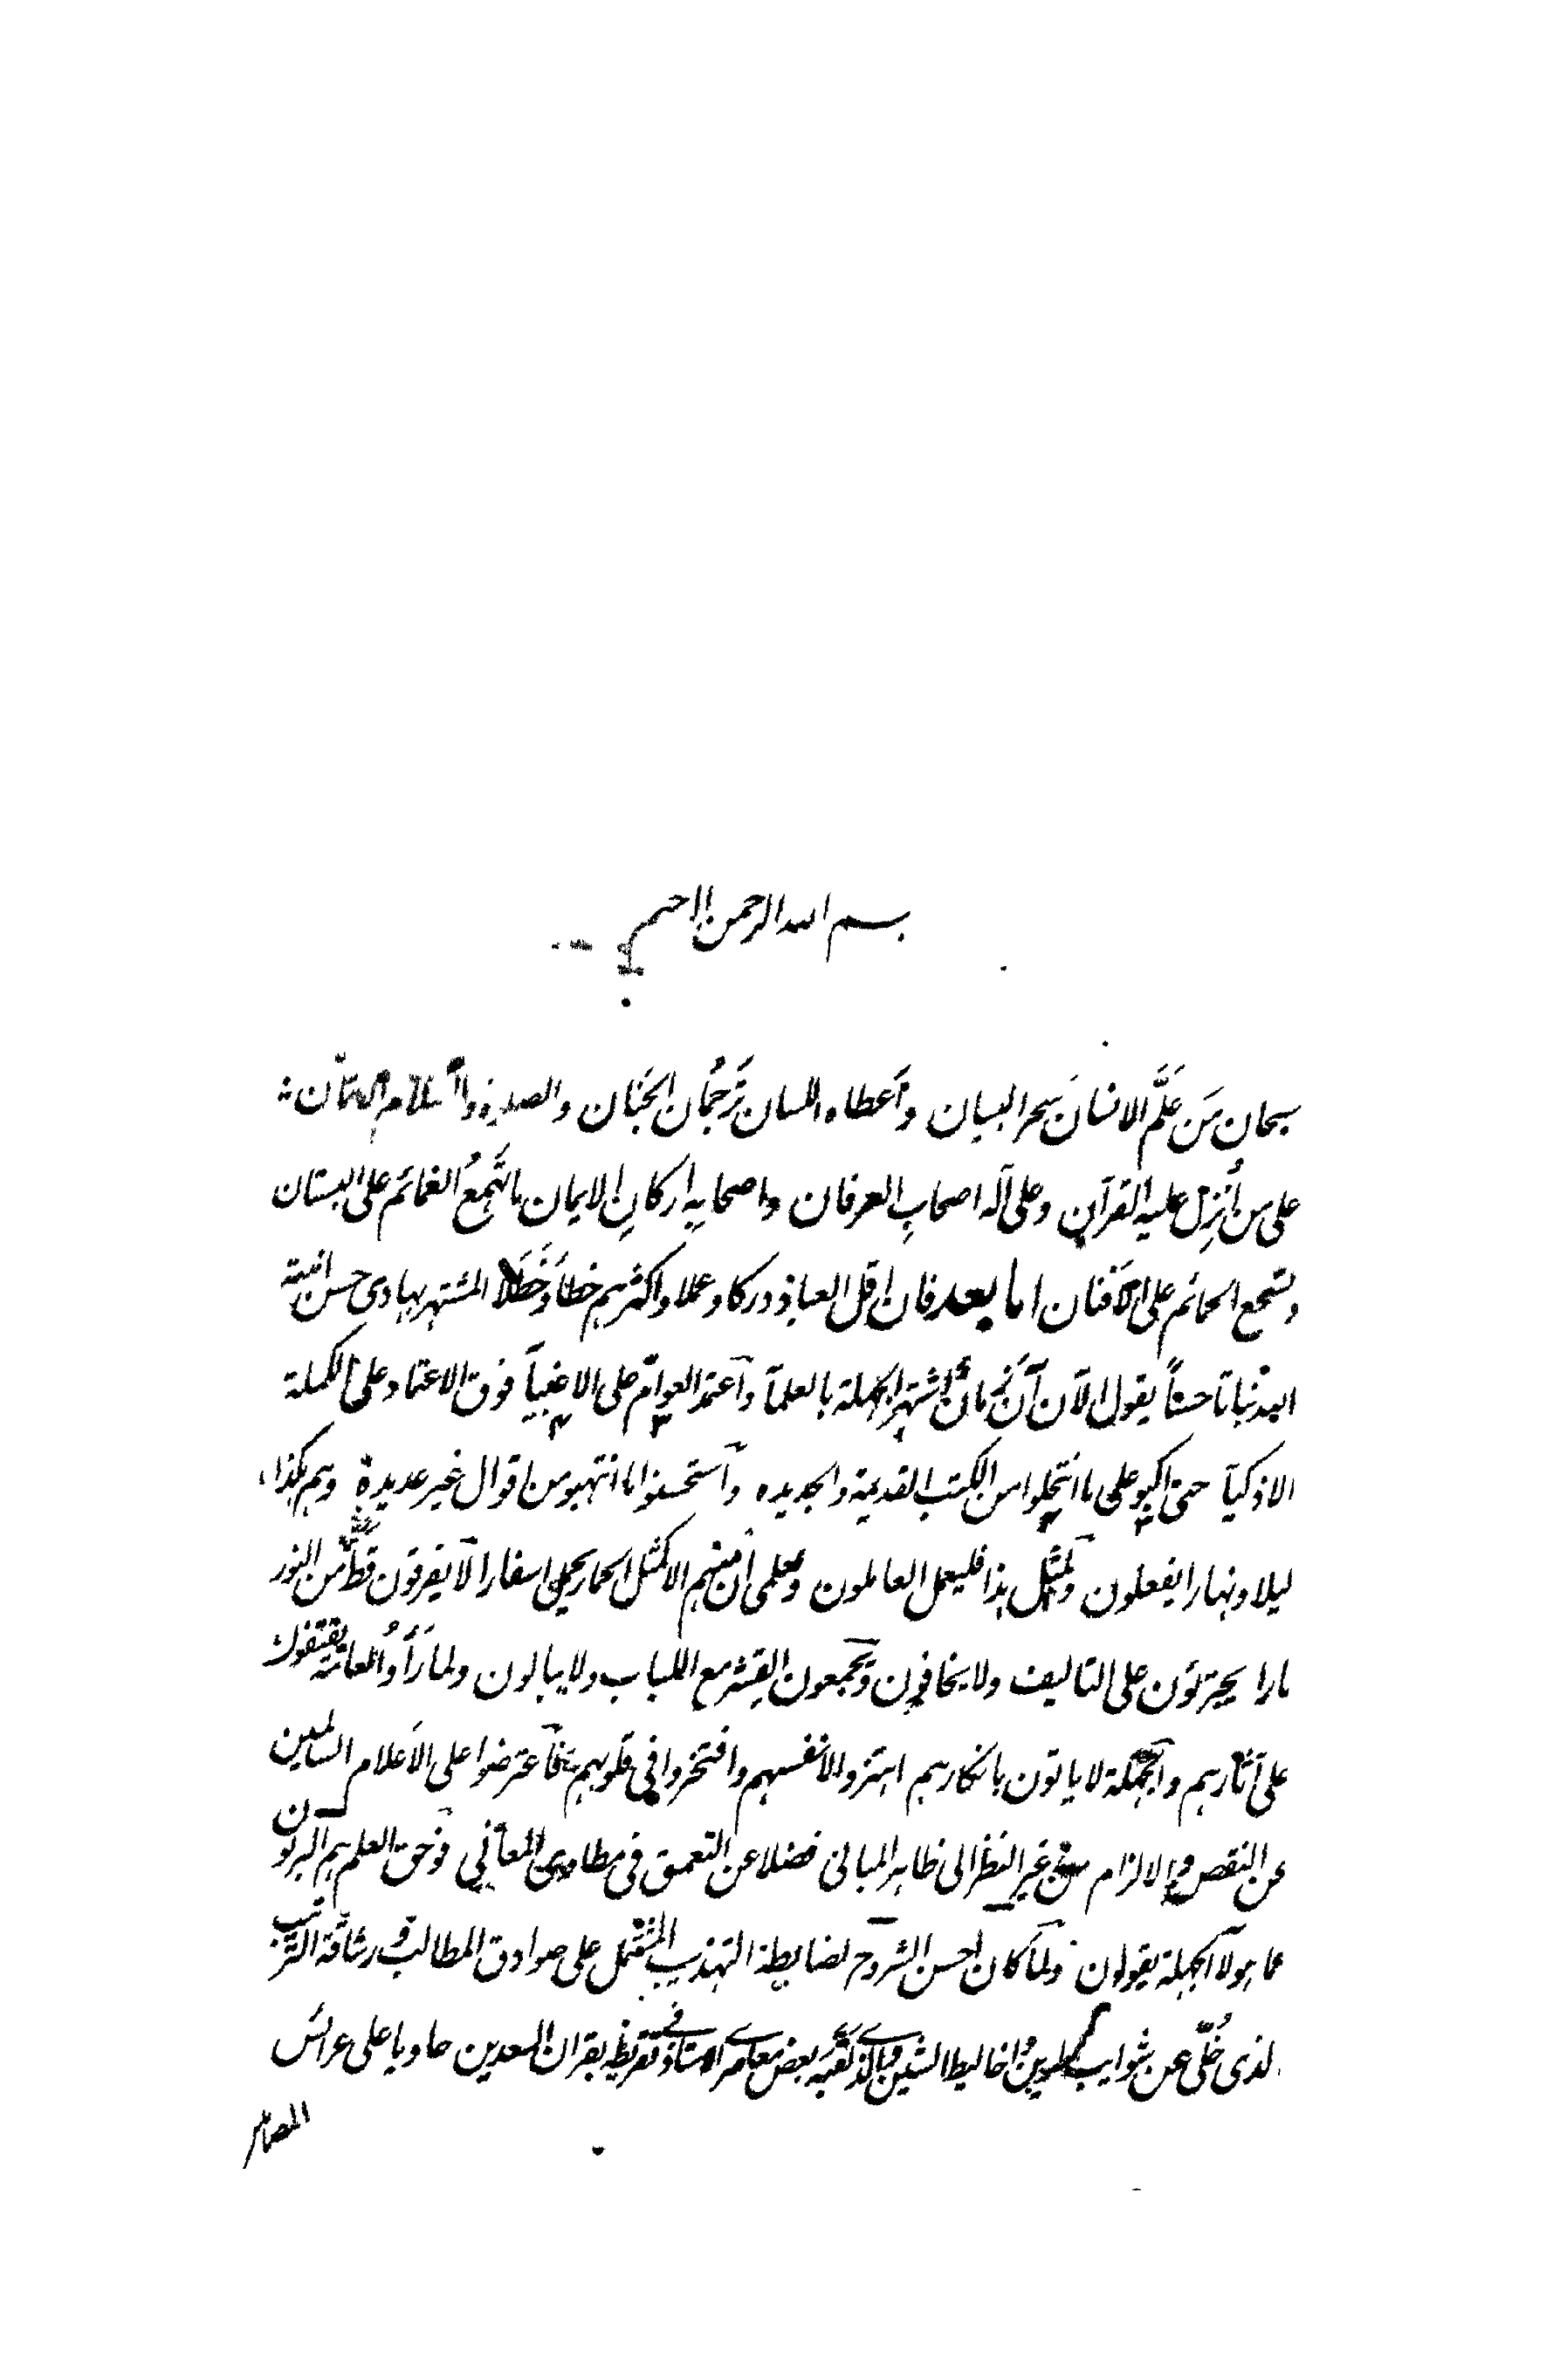 بسم الله الرحمن الرحيم
سبحان مَن عَلَّم الانسانَ سحر البيان وأعطاه اللسان تَرجُمان الجَنان والصلوة والسلام
على من أُنزِل عليه القرآن وعلى آله اصحابِ العرفان واصحابه اركانِ الايمان ما تَجمعُ الغمائم على البستان
وتسجع الحمائم على الافنان اما بعد فان اقل العباد دركا وعملا واكثرهم خطأ وخَطَلا المشتهر بهادى حسن انبته
الله نباتا حسناً يقول الآن آن زمان اشتهر الجهلة بالعلمآ واعتمد العوامّ على الاغبيآ فوق الاعتماد على الكملة
الاذكيآ حتى اكبو على ما انتحلوا من الكتب القديمة والجديده واستحسنوا ما انتهبو من اقوال غير عديدة وهم هكذا
ليلا ونهارا يفعلون ولمثل هذا فليعمل العاملون ولعلمى ان منهم الا كمثل الحمار يحمل اسفارا لا يفرقون قطّ من النور
نارا يجترئون على التاليف ولا يخافون ويجمعون القِشر مع اللباب ولا يبالون ولما رَأَوُا العامّة يقتفون
على آثارهم والجهلة لا ياتون بانكارهم اهتزو الانفسهم وافتخروا فى قلوبهم فاعترضوا على الاَعلام السالمين
عن النقص والالزام من غير النظر الى ظاهر المبانى فضلا عن التعمق فى مطاوى المعانى فوحق العلم هم البرئون
عما هولآ الجهلة يقولون ولما كان احسن الشروح لضابطة التهذيب المشتمل على صوادق المطالب ورشاقة الترتيب
الذى خُلّى عن شوايب المين واخاليط الشين والذى لقّبه بعض معاصرى الاستاذ فى تقريظه بقران السعدين حاويا على عرائس